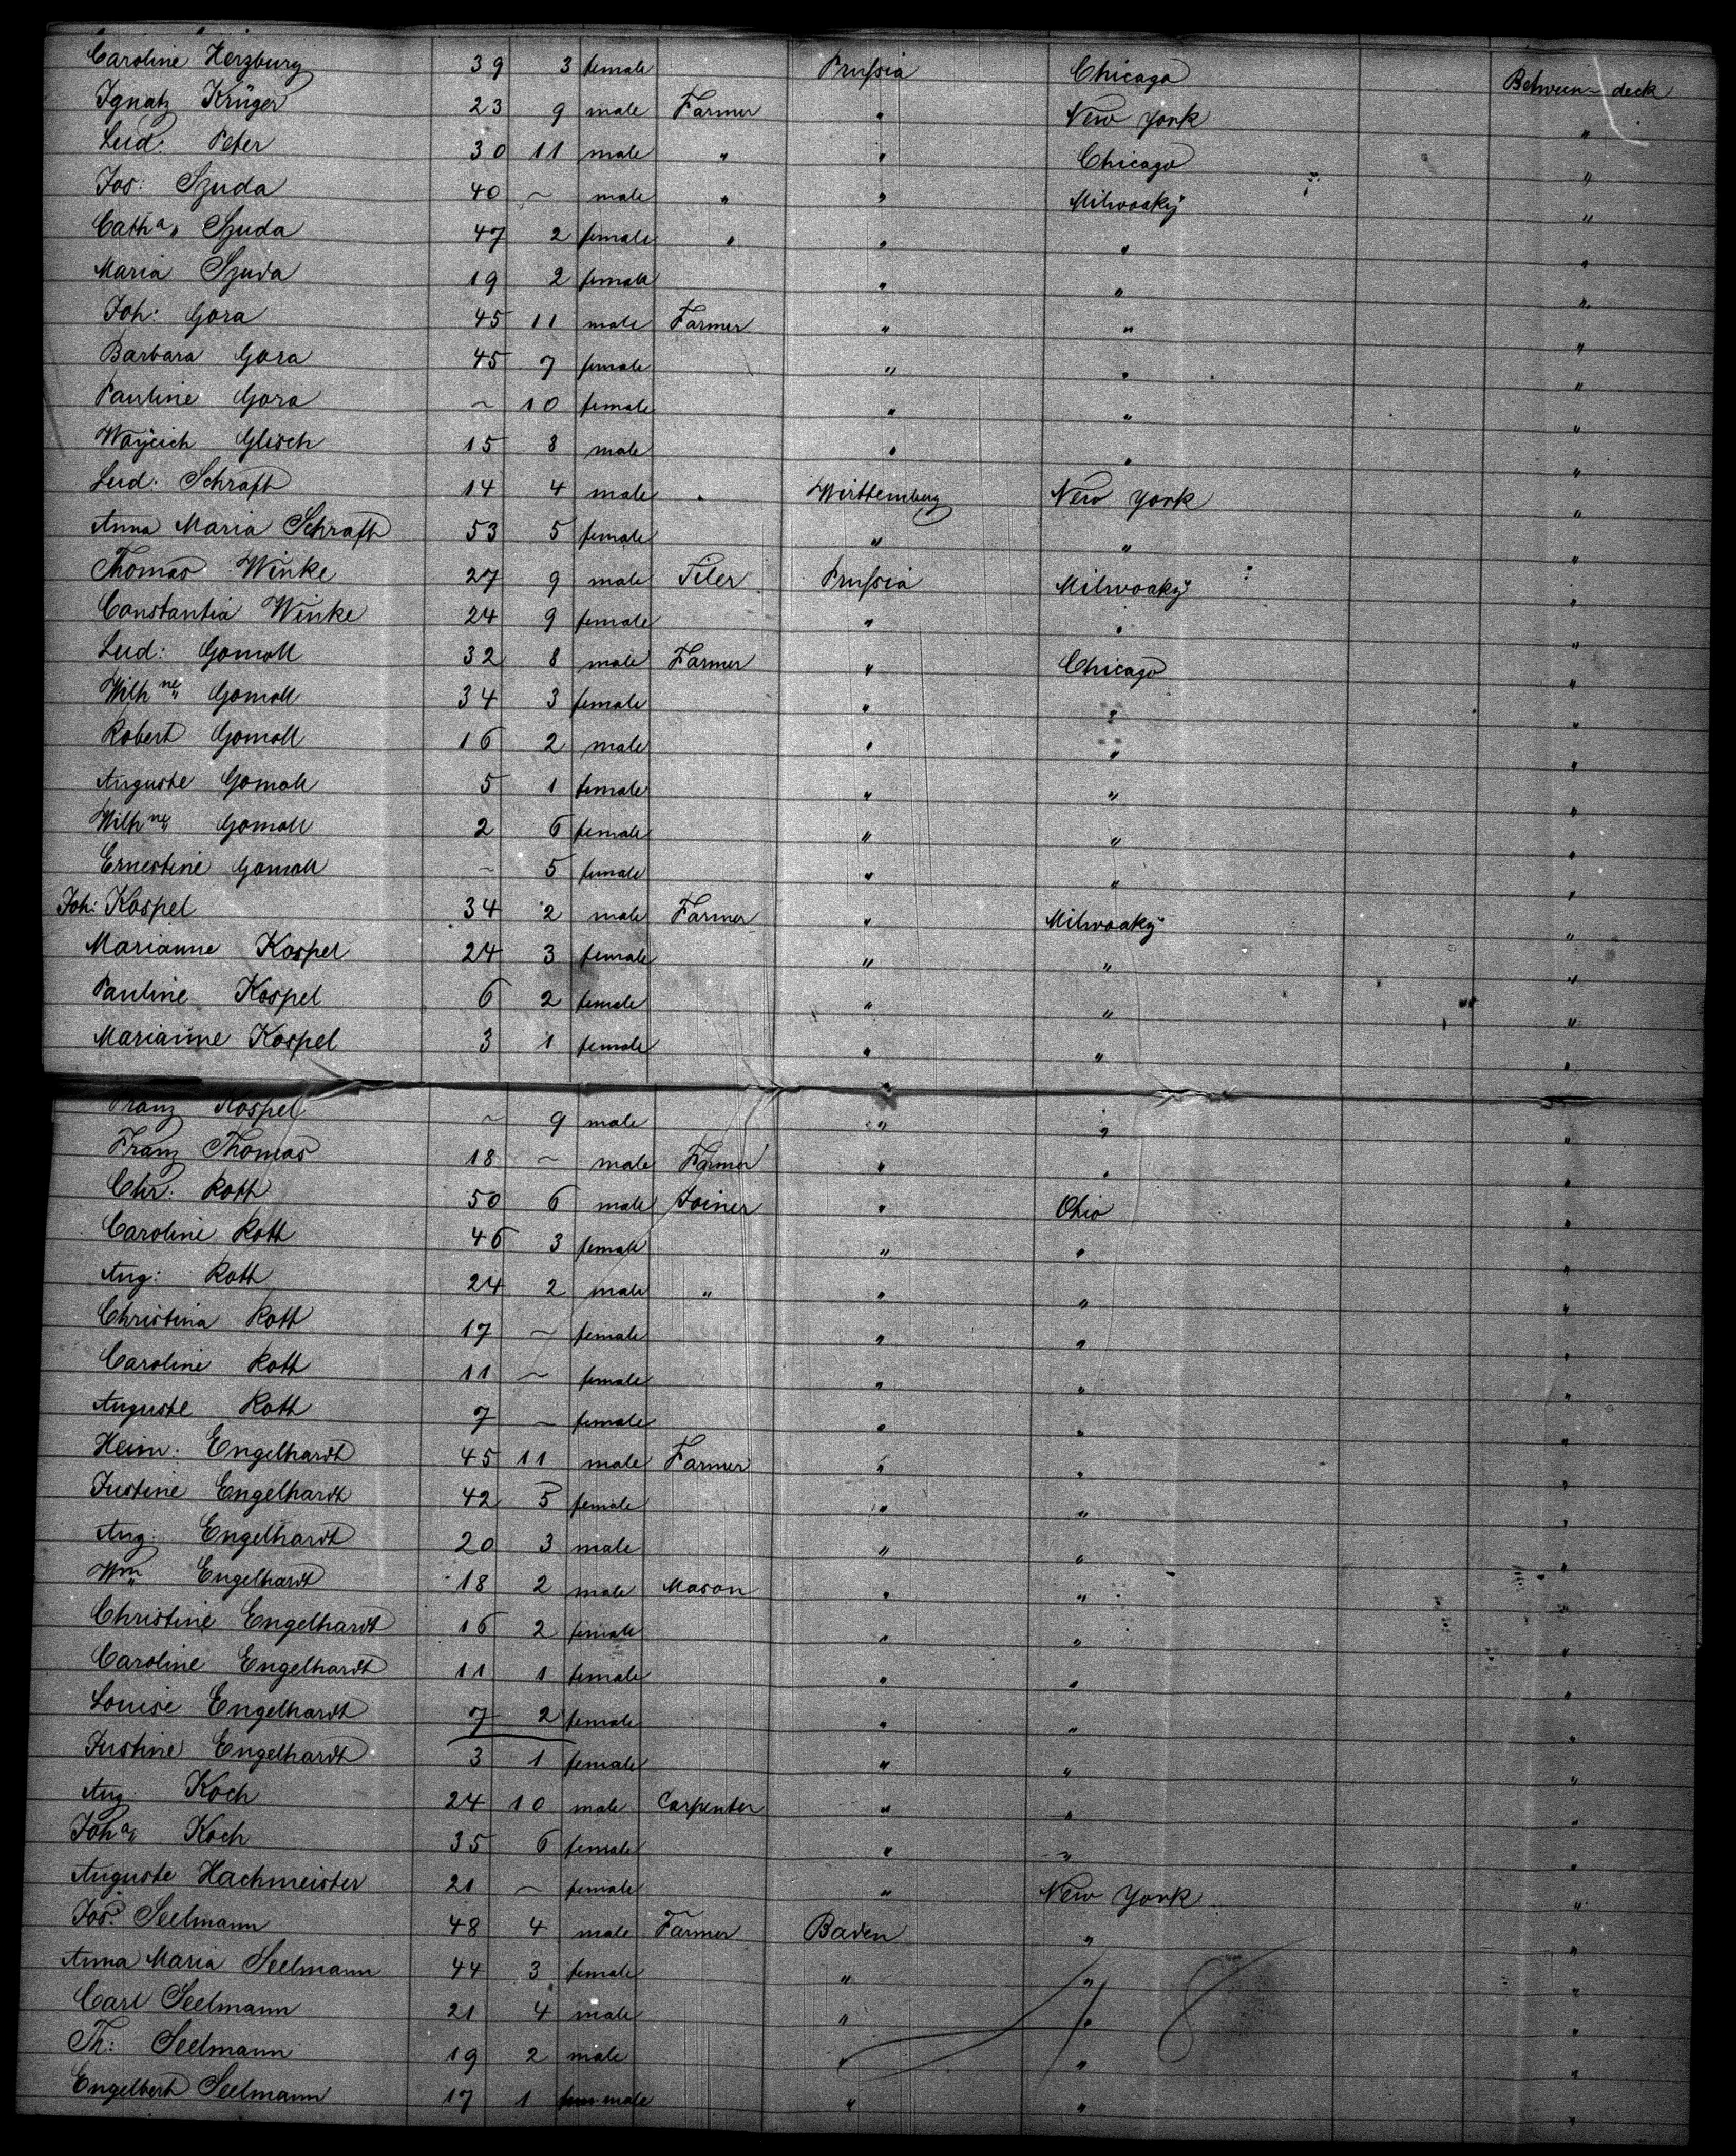 Caroline Herzburg 39 3 female Prußia Chicago Between deck
Ignatz Krüger 23 9 male Farmer " New York "
Lud: Peter 30 11 male " " Chicago "
Jos: Szuda 40 ~ male " " Milwoaky "
Catha. Szuda 47 2 female " " " "
Maria Szuda 19 2 female " " "
Joh: Gora 45 11 male Farmer " " "
Barbara Gora 45 7 female " " "
Pauline Gora ~ 10 female " " "
Woycich Glisch 15 8 male " " "
Lud. Schraft 14 4 male Wirttemberg New York "
Anna Maria Schraft 53 5 female " " "
Thomas Winke 27 9 male Tiler Prußia Milwoaky "
Constantia Winke 24 9 female " " "
Lud: Gomoll 32 8 male Farmer " Chicago "
Wilhne Gomoll 34 3 female " " "
Robert Gomoll 16 2 male " " "
Auguste Gomoll 5 1 female " " "
Wilhne Gomoll 2 6 female " " "
Ernestine Gomoll ~ 5 female " " "
Joh: Kospel 34 2 male Farmer " Milwoaky "
Marianne Kospel 24 3 female " " "
Pauline Kospel 6 2 female " " "
Marianne Kospel 3 1 female " " "
Franz Kospel ~ 9 male " " "
Franz Thomas 18 ~ male Farmer " " "
Chr: Roth 50 6 male Joiner " Ohio "
Caroline Roth 46 3 female " " "
Aug: Roth 24 2 male " " " "
Christina Roth 17 ~ female " " "
Caroline Roth 11 ~ female " " "
Auguste Roth 7 ~ female " " "
Heinr. Engelhardt 45 11 male Farmer " " "
Justine Engelhardt 42 5 female " " "
Aug. Engelhardt 20 3 male " " "
Wm Engelhardt 18 2 male Mason " " "
Christine Engelhardt 16 2 female " " "
Caroline Engelhardt 11 1 female " " "
Louise Engelhardt 7 2 female " " "
Justine Engelhardt 3 1 female " " "
Aug Koch 24 10 male Carpenter " " "
Joha. Koch 35 6 female " " "
Auguste Hachmeister 21 ~ female " New York "
Jos. Seelmann 48 4 male Farmer Baden " "
Anna Maria Seelmann 44 3 female " " "
Carl Seelmann 21 4 male " " "
Th: Seelmann 19 2 male " " "
Engelbert Seelmann 17 1 male " " "